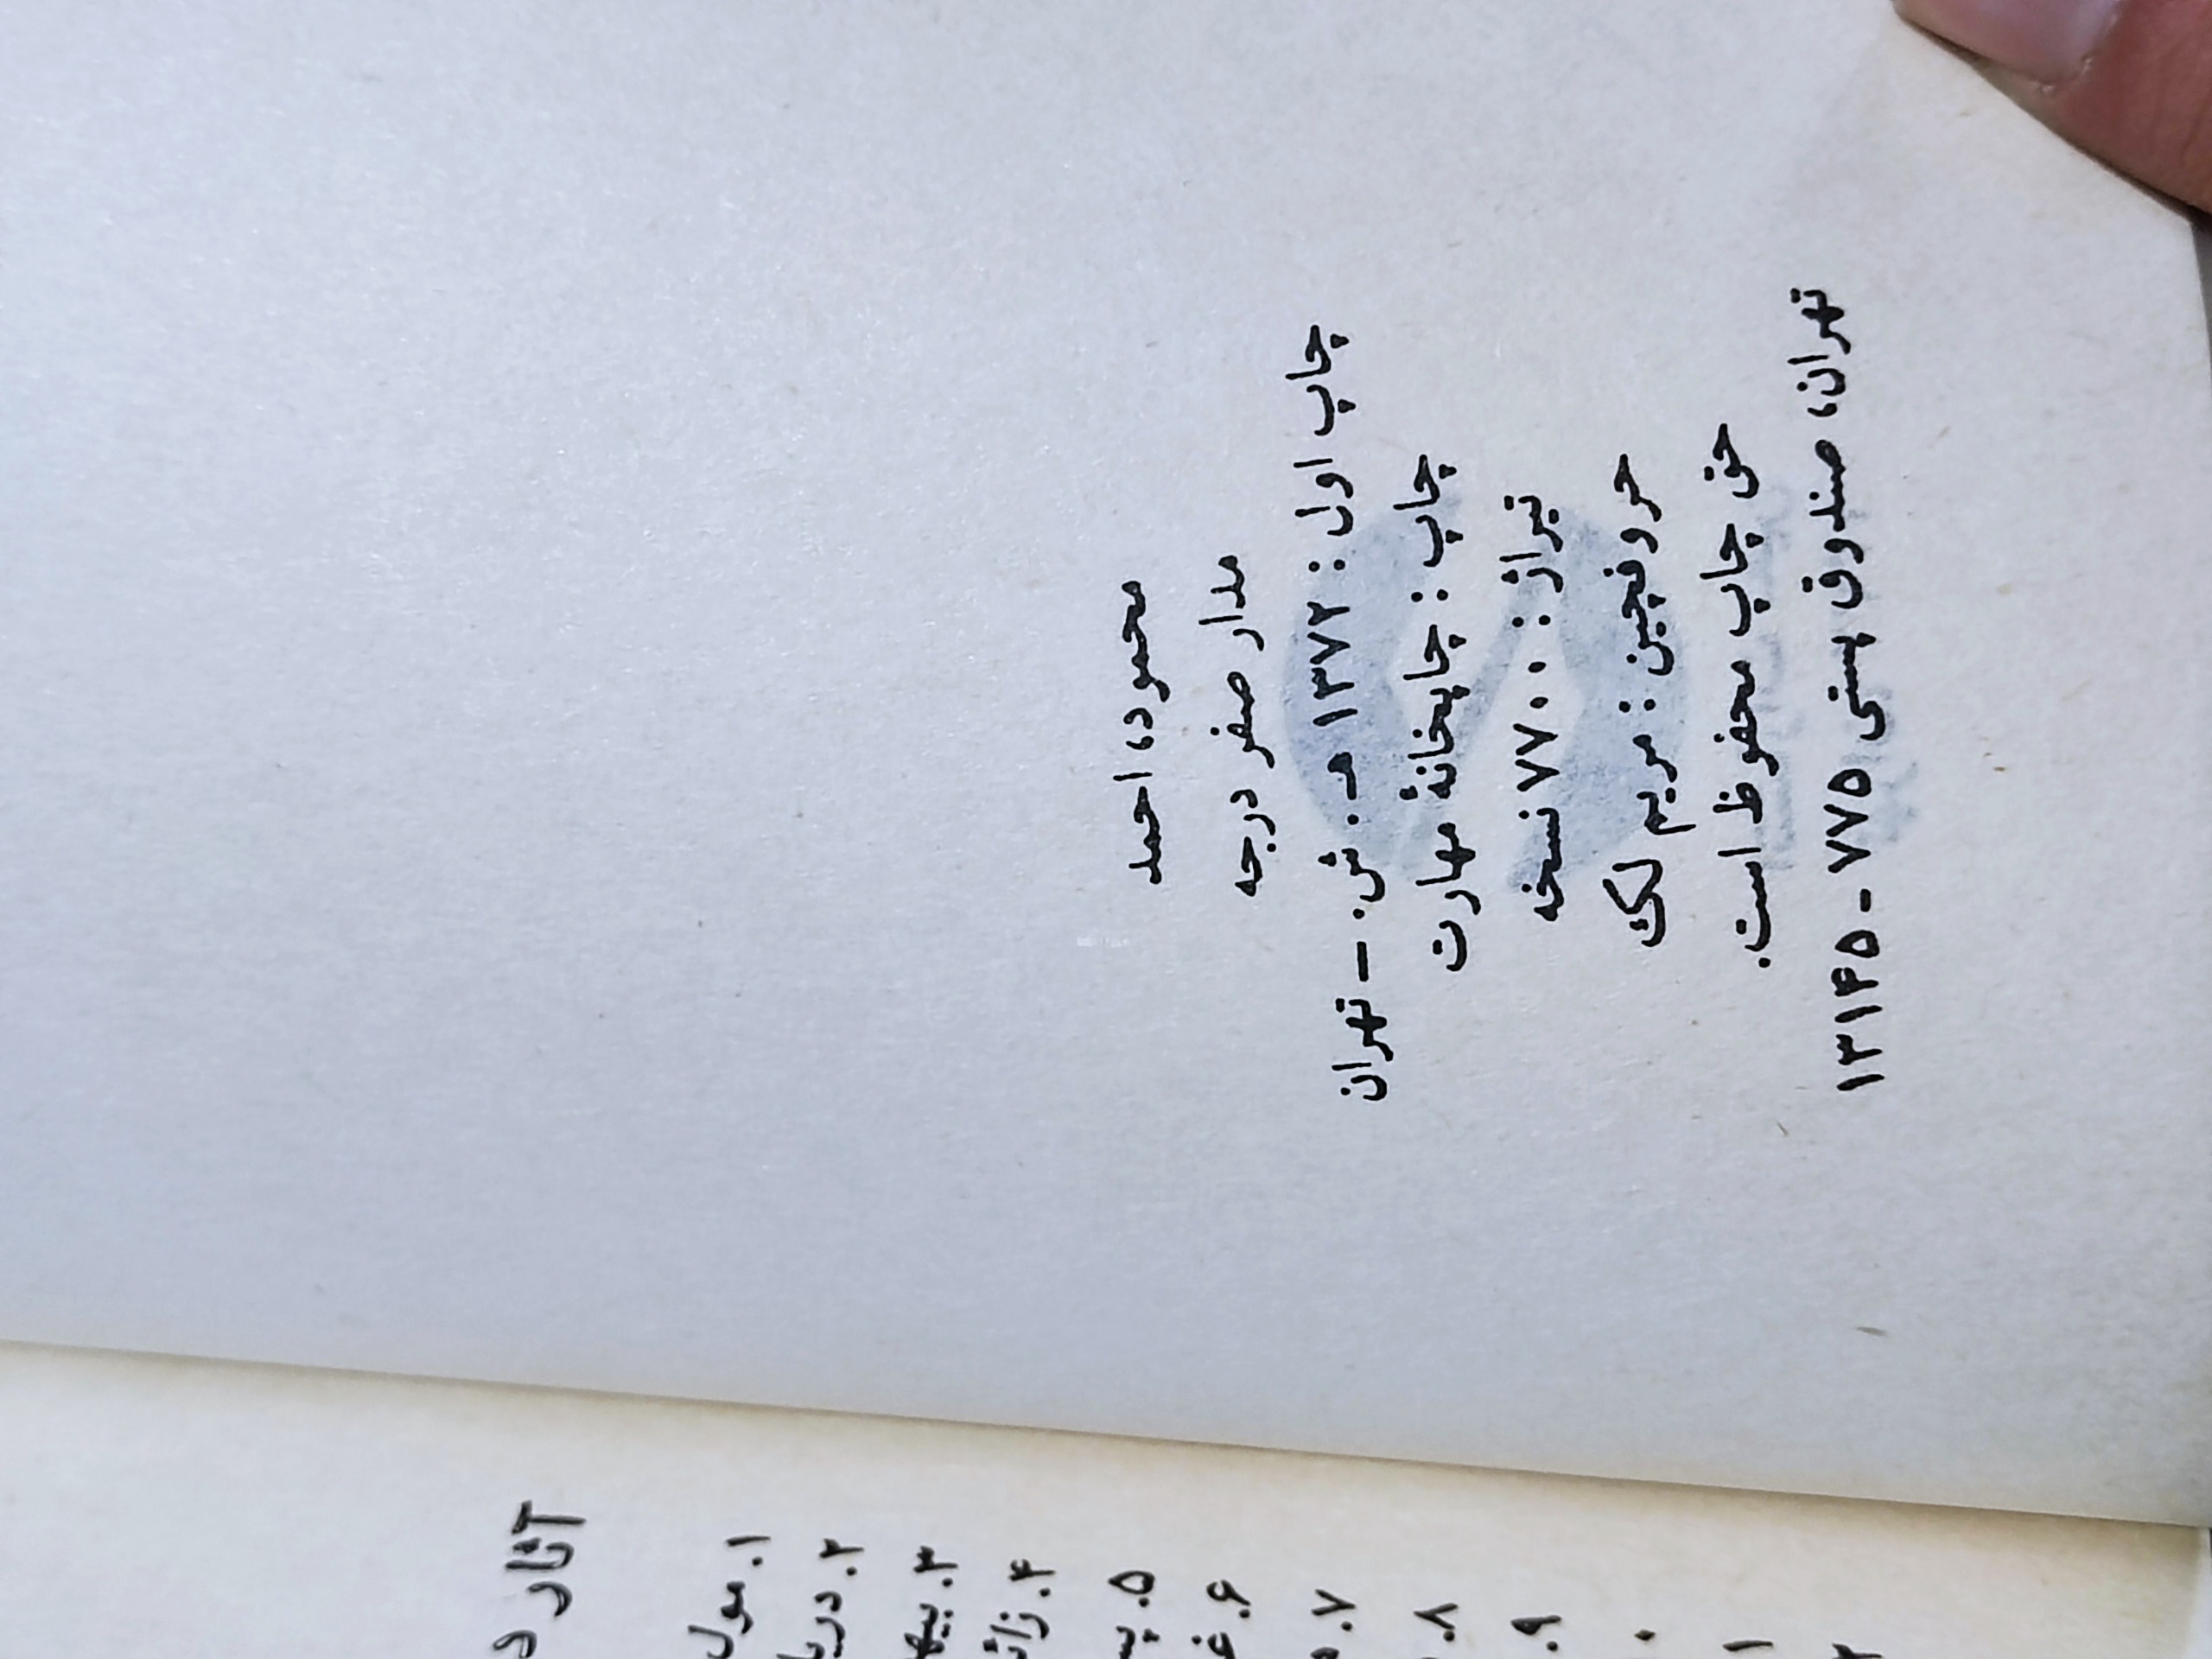 محمود، احمد
مدار صفر درجه
چاپ اول: ۱۳۷۲ ه‍. ش. – تهران
چاپ: چاپخانهٔ مهارت
تیراژ: ۷۷۰۰ نسخه
حروفچین: مریم لک
حق چاپ محفوظ است.
تهران، صندوق پستی ۷۷۵-۱۳۱۴۵
آثار
۱.
۲.
۳.
۴.
۵.
۶.
۷.
۸.
۹.